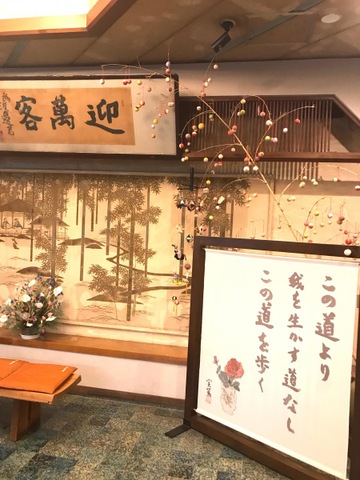 迎萬客
この道より
我を生かす道なし
この道を歩く